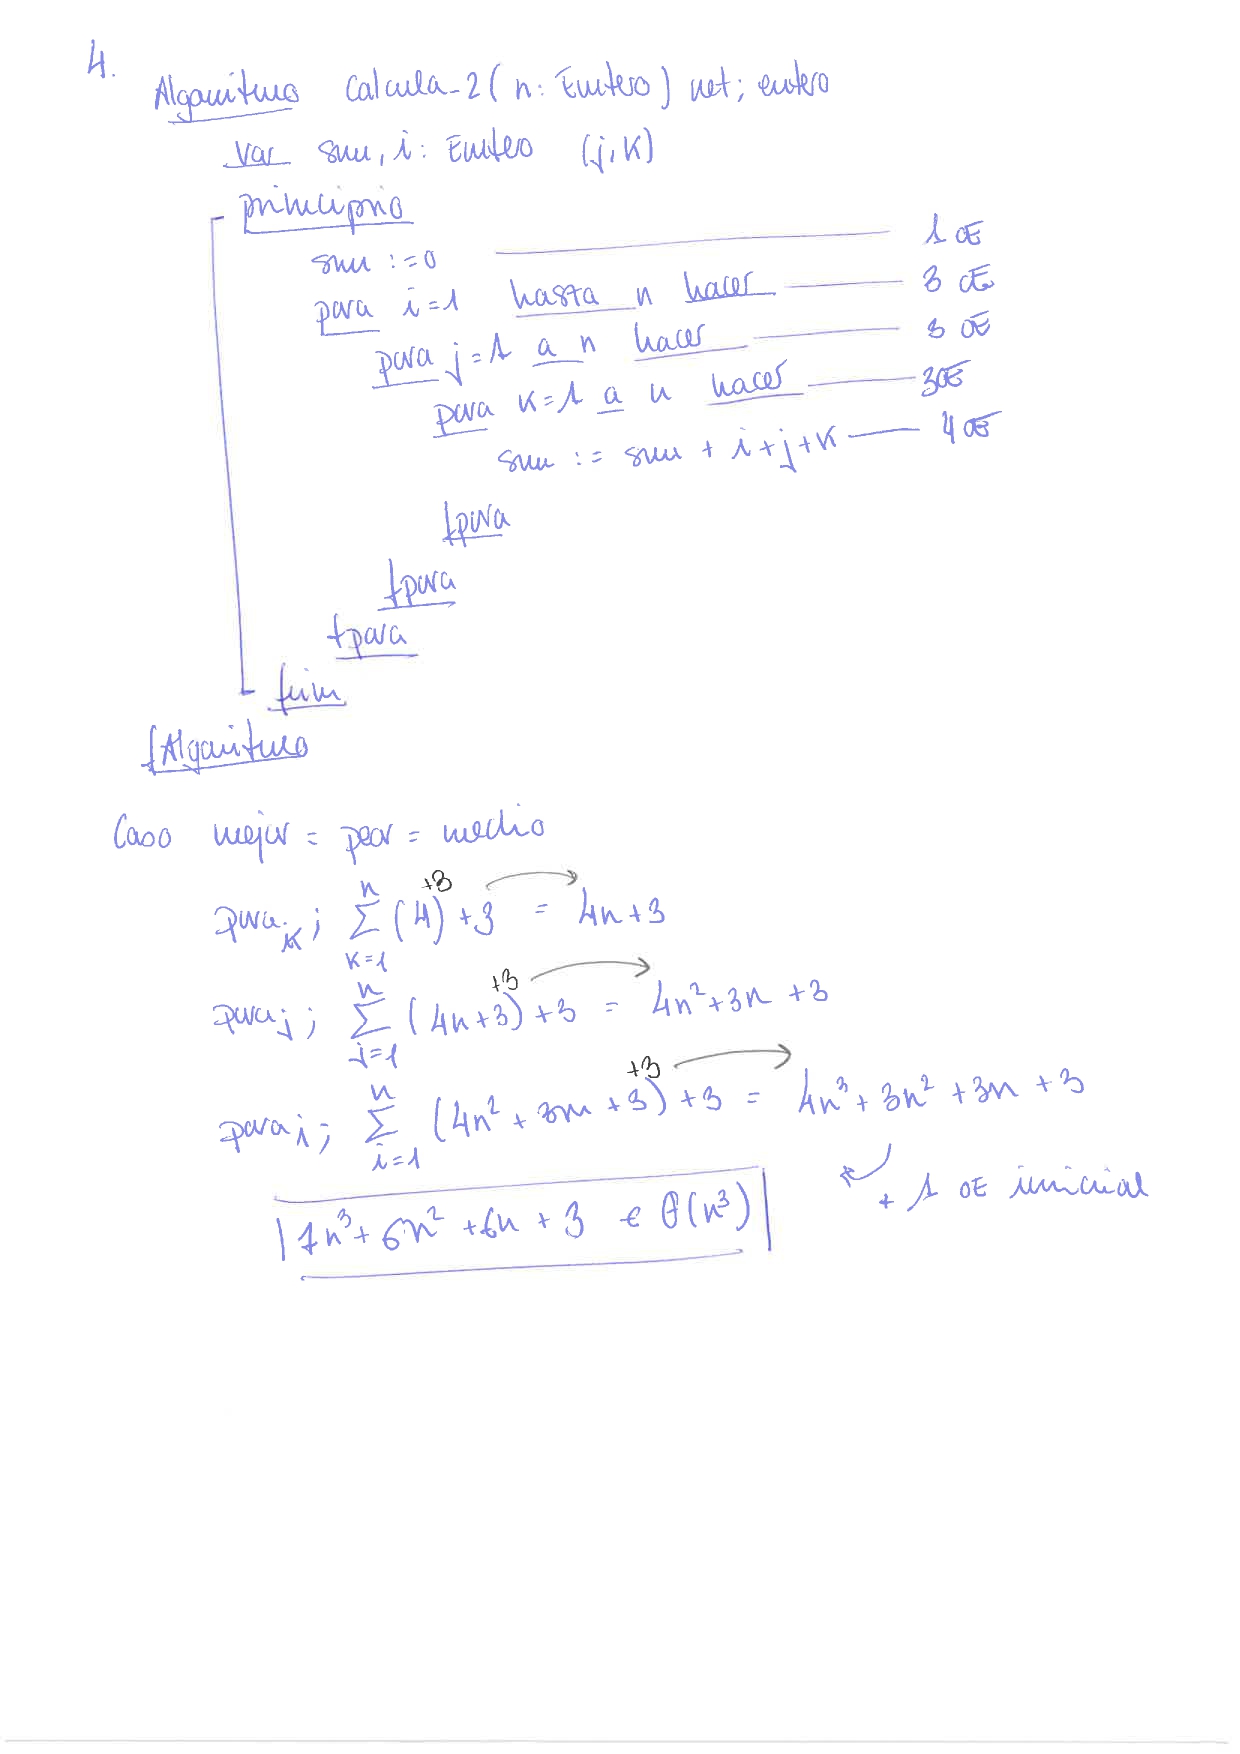 4.
Algoritmo Calcula-2 ( n: Entero) ret; entero
Var sm, i: Entero (j, K)
principio
sm := 0 1 OE
para i=1 hasta n hacer 3 OE
para j=1 a n hacer 3 OE
para K=1 a n hacer 3OE
sm := sm + i+j+K 4 OE
fpara
fpara
fpara
fin
fAlgoritmo
Caso mejor = peor = medio
para K ; n ∑ K=1 (4) +3 +3 = 4n+3
para j ; n ∑ j=1 (4n+3) +3 +3 = 4n²+3n+3
para i ; n ∑ i=1 (4n² + 3n +3) +3 +3 = 4n³+3n²+3n+3
+ 1 OE inicial
7n³+6n²+6n+3 ∈ θ(n³)